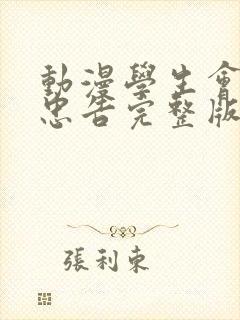 動漫學生會
忠告完整版
張利東